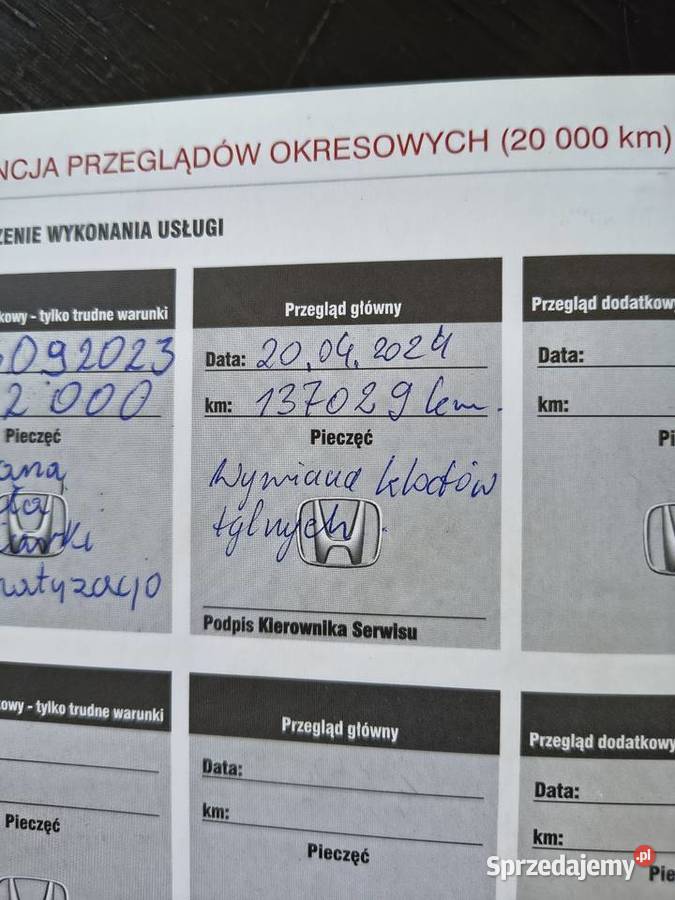 NCJA PRZEGLĄDÓW OKRESOWYCH (20 000 km)
ZENIE WYKONANIA USŁUGI
kowy - tylko trudne warunki
092023
2000
Pieczęć
Przegląd główny
Data: 20.04.2024
km: 137029 km.
Pieczęć
Wymiana klocków
tylnych.
Podpis Kierownika Serwisu
Przegląd dodatkowy
Data:
km:
Pi
owy - tylko trudne warunki
Pieczęć
Przegląd główny
Data:
km:
Pieczęć
Przegląd dodatkowy
Data:
km:
Pie
Sprzedajemy.pl